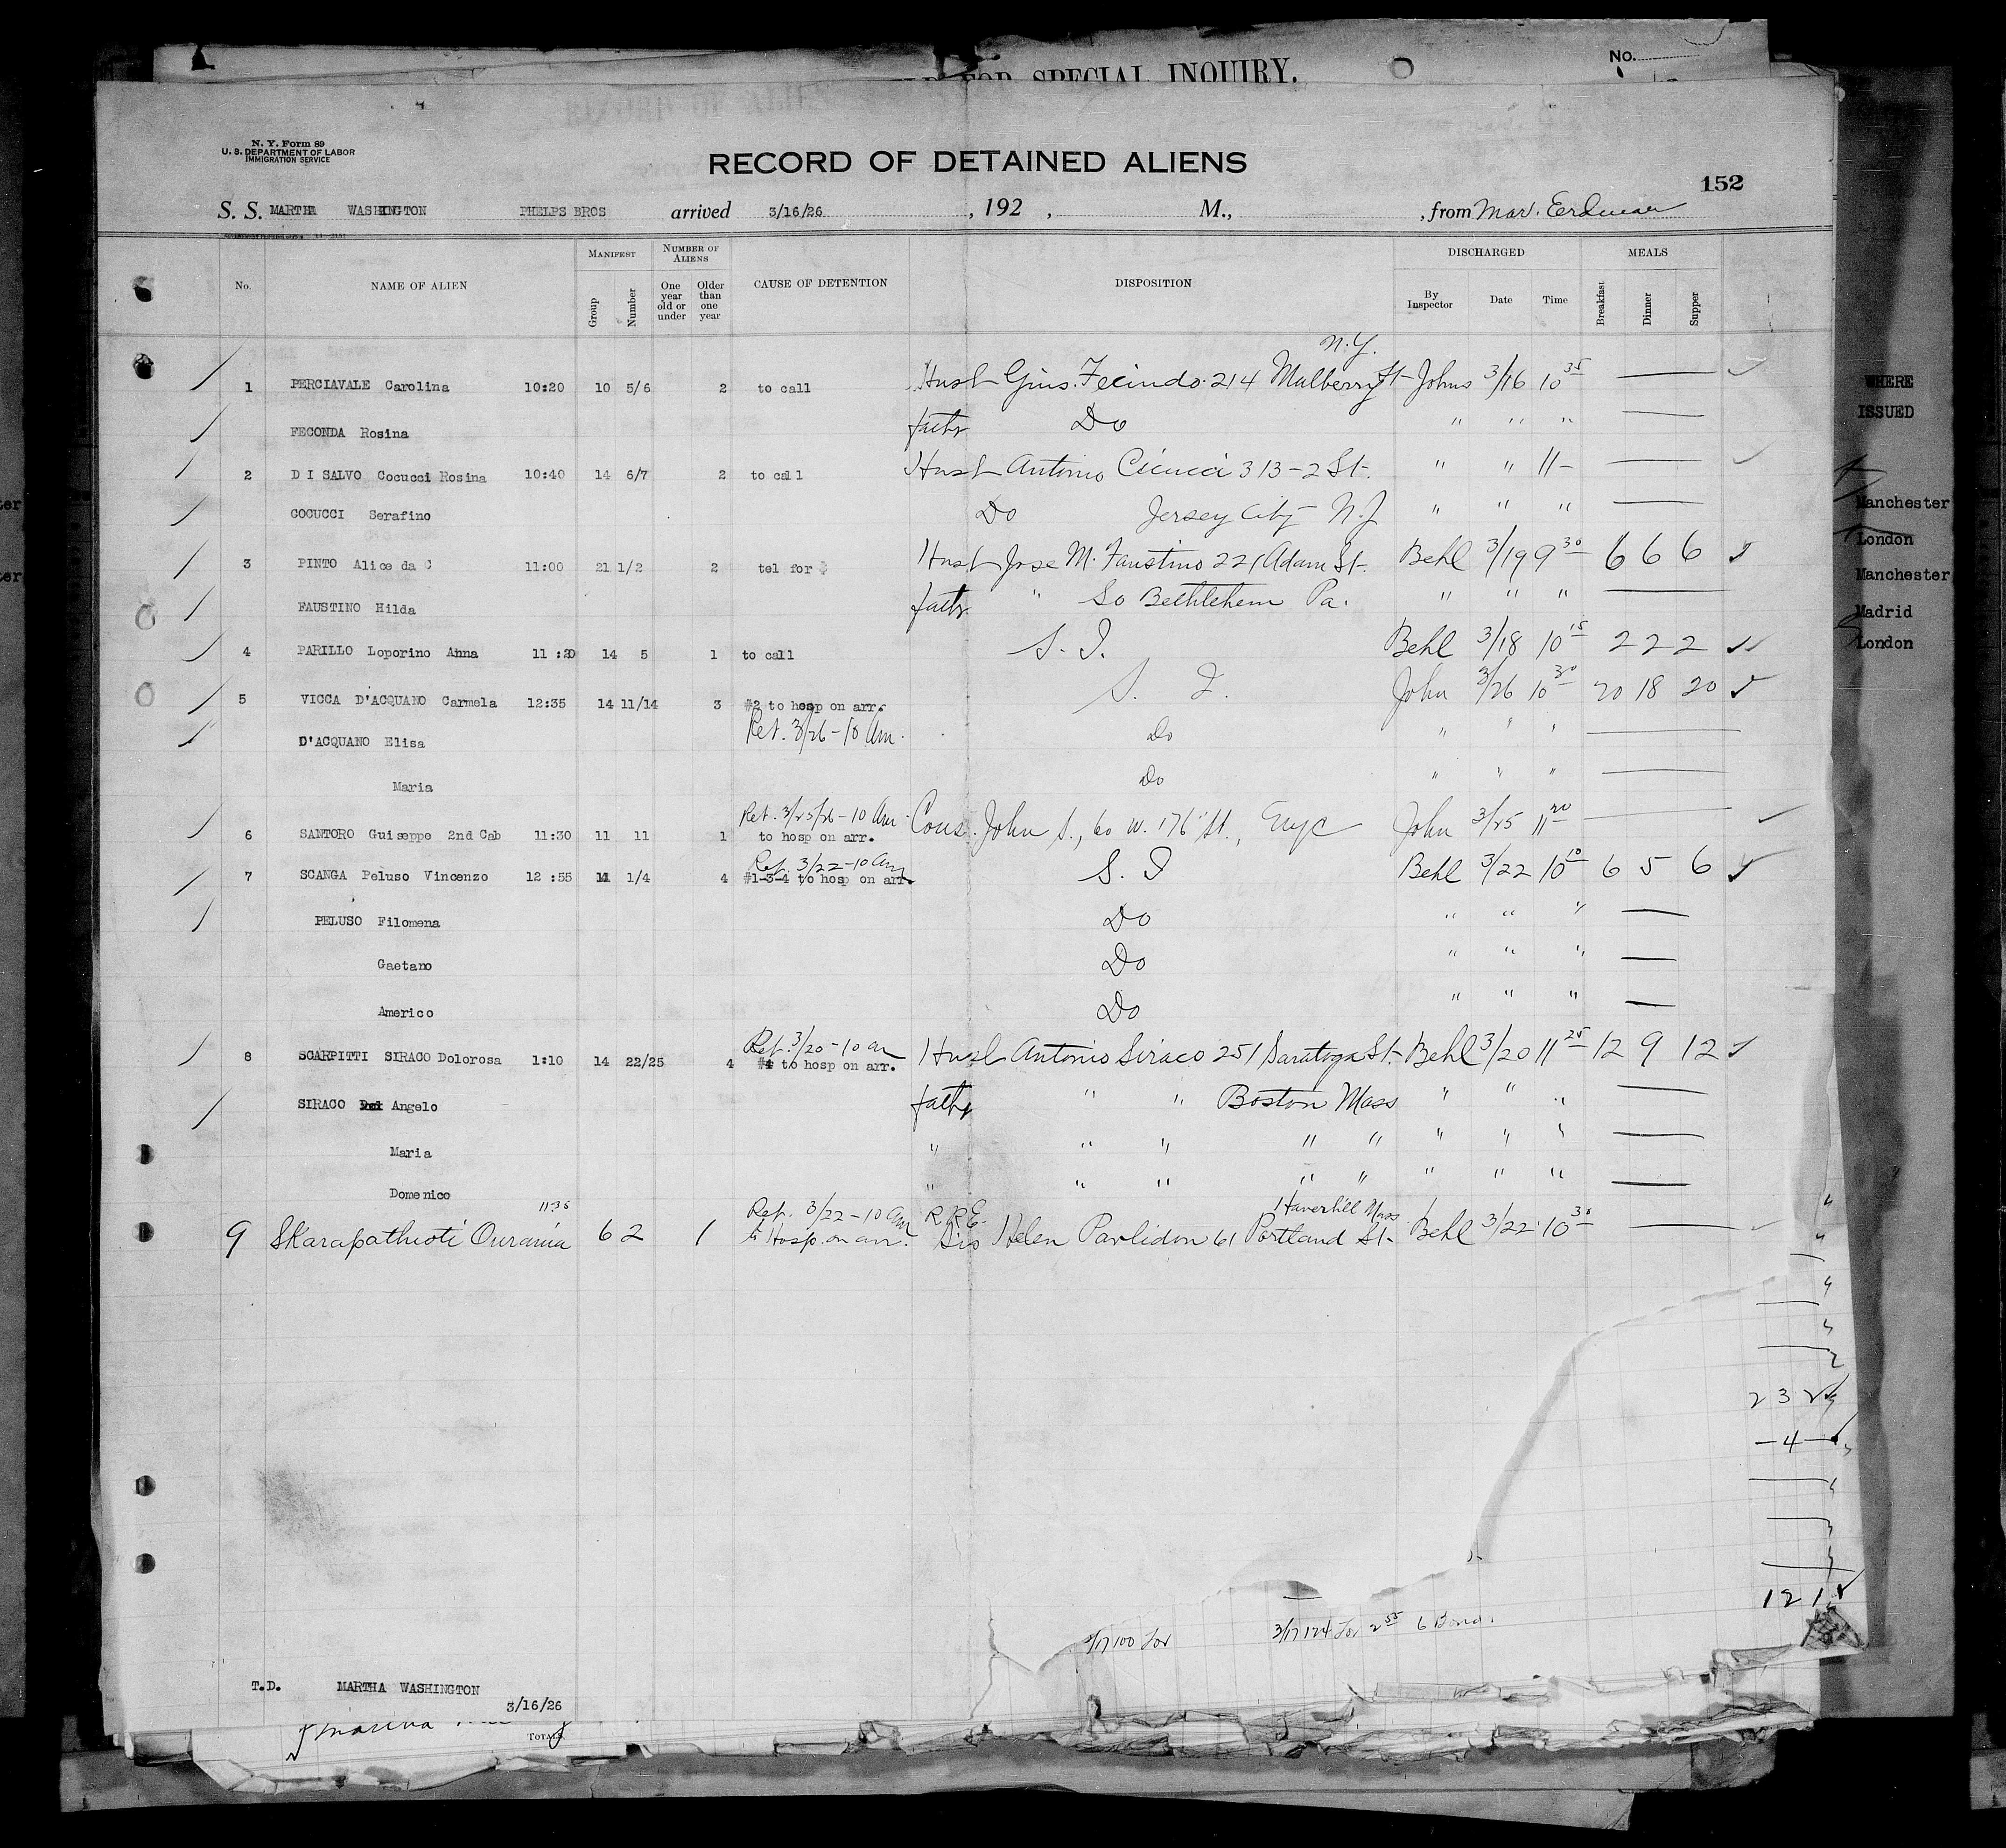 FOR SPECIAL INQUIRY.
No.
N. Y. Form 89
U. S. DEPARTMENT OF LABOR
IMMIGRATION SERVICE
RECORD OF DETAINED ALIENS
152
S. S. MARTHA WASHINGTON PHELPS BROS arrived 3/16/26, 192 , M., , from Mar. Erdman
No. NAME OF ALIEN MANIFEST Group Number NUMBER OF ALIENS One year old or under Older than one year CAUSE OF DETENTION DISPOSITION DISCHARGED By Inspector Date Time MEALS Breakfast Dinner Supper
N.Y.
1 PERCIAVALE Carolina 10:20 10 5/6 2 to call Husb Gius. Fecindo 214 Mulberry St- Johns 3/16 10 35
FECONDA Rosina fathr Do " " "
2 D I SALVO Cocucci Rosina 10:40 14 6/7 2 to call Husb Antonio Cicucci 313-2 St- " " 11-
COCUCCI Serafino Do Jersey City N.J " " "
3 PINTO Alice da C 11:00 21 1/2 2 tel for $ Husb Jose M. Faustino 221 Adam St- Behl 3/19 9 30 6 6 6
FAUSTINO Hilda fathr " So Bethlehem Pa. " " "
4 PARILLO Loporino Anna 11:20 14 5 1 to call S. I. Behl 3/18 10 15 2 2 2
5 VICCA D'ACQUANO Carmela 12:35 14 11/14 3 #2 to hosp on arr. S. I. John 3/26 10 30 20 18 20
Ret. 3/26-10 Am.
D'ACQUANO Elisa Do " " "
Maria Do " " "
Ret. 3/25/26-10 Am.
6 SANTORO Guiseppe 2nd Cab 11:30 11 11 1 to hosp on arr. Cous. John S., 60 W. 176" St., NYC John 3/25 11 20
Ret. 3/22-10 Am
7 SCANGA Peluso Vincenzo 12:55 14 1/4 4 #1-3-4 to hosp on arr. S. I Behl 3/22 10 10 6 5 6
PELUSO Filomena Do " " "
Gaetano Do " " "
Americo Do " " "
Ret. 3/20-10 am
8 SCARPITTI SIRACO Dolorosa 1:10 14 22/25 4 #4 to hosp on arr. Husb Antonio Siraco 251 Saratoga St- Behl 3/20 11 25 12 9 12
SIRACO Angelo fathr " " Boston Mass " " "
Maria " " " " " " " "
Domenico " " " " " " " "
11:35 Ret. 3/22-10 Am R R E Haverhill Mass
9 Skarapathioti Ourania 6 2 1 to Hosp. on arr. Sis Helen Pavlidon 61 Portland St- Behl 3/22 10 30
2 3 2
-4-
121
3/17 100 for 3/17 124 for 2 55 6 Bond.
T.D. MARTHA WASHINGTON
3/16/26
TOTALS
WHERE
ISSUED
Manchester
London
Manchester
Madrid
London